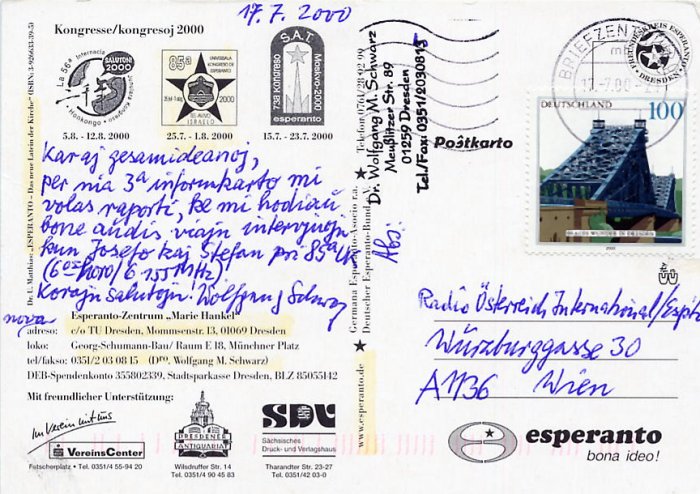 17.7.2000
Kongresse/kongresoj 2000
La 56a Internacia
BALATONI 2000
85a
UNIVERSALA KONGRESO DE ESPERANTO
25.7.-1.8.
2000
TEL-AVIVO
ISRAELO
S.A.T.
73a Kongreso
Moskvo-2000
esperanto
5.8. - 12.8. 2000
25.7. - 1.8. 2000
15.7. - 23.7. 2000
Karaj gesamideanoj,
per mia 3a informkarto mi
volas raporti, ke mi hodiaŭ
bone aŭdis viajn intervjuojn
kun Josefo kaj Stefan pri 85a UK
(6055 MHz)
Korajn salutojn! Wolfgang Schwarz
nova
Esperanto-Zentrum „Marie Hankel“
adreso: c/o TU Dresden, Mommsenstr. 13, 01069 Dresden
loko: Georg-Schumann-Bau / Raum E 18, Münchner Platz
tel/fakso: 0351/2 03 08 15 (Dro. Wolfgang M. Schwarz)
DEB-Spendenkonto 355802339, Stadtsparkasse Dresden, BLZ 85055142
Mit freundlicher Unterstützung:
Im Verein mit uns
VereinsCenter
Futscherplatz • Tel. 0351/4 55-94 20
DRESDENER
ANTIQUARIAT
Wilsdruffer Str. 14
Tel. 0351/4 90 45 83
SDV
Sächsisches
Druck- und Verlagshaus
Tharandter Str. 23-27
Tel. 0351/42 03-0
Dr. L. Matthias: „ESPERANTO - Das neue Latein der Kirche“ (ISBN: 3-926633-39-5)
www.esperanto.de
Germana Esperanto-Asocio r.a.
Deutscher Esperanto-Bund e.V.
Telefon 0761/28 92 99
Abs:
Dr. Wolfgang M. Schwarz
Meußlitzer Str. 89
01259 Dresden
Tel/Fax: 0351/2030815
Poŝtkarto
BRIEFZENTRUM
17.-7.00
FREUNDESKREIS ESPERANTO
DRESDEN
DEUTSCHLAND
100
BLAUES WUNDER IN DRESDEN
2000
Radio Österreich International/Espto
Würzburggasse 30
A1136 Wien
esperanto
bona ideo!